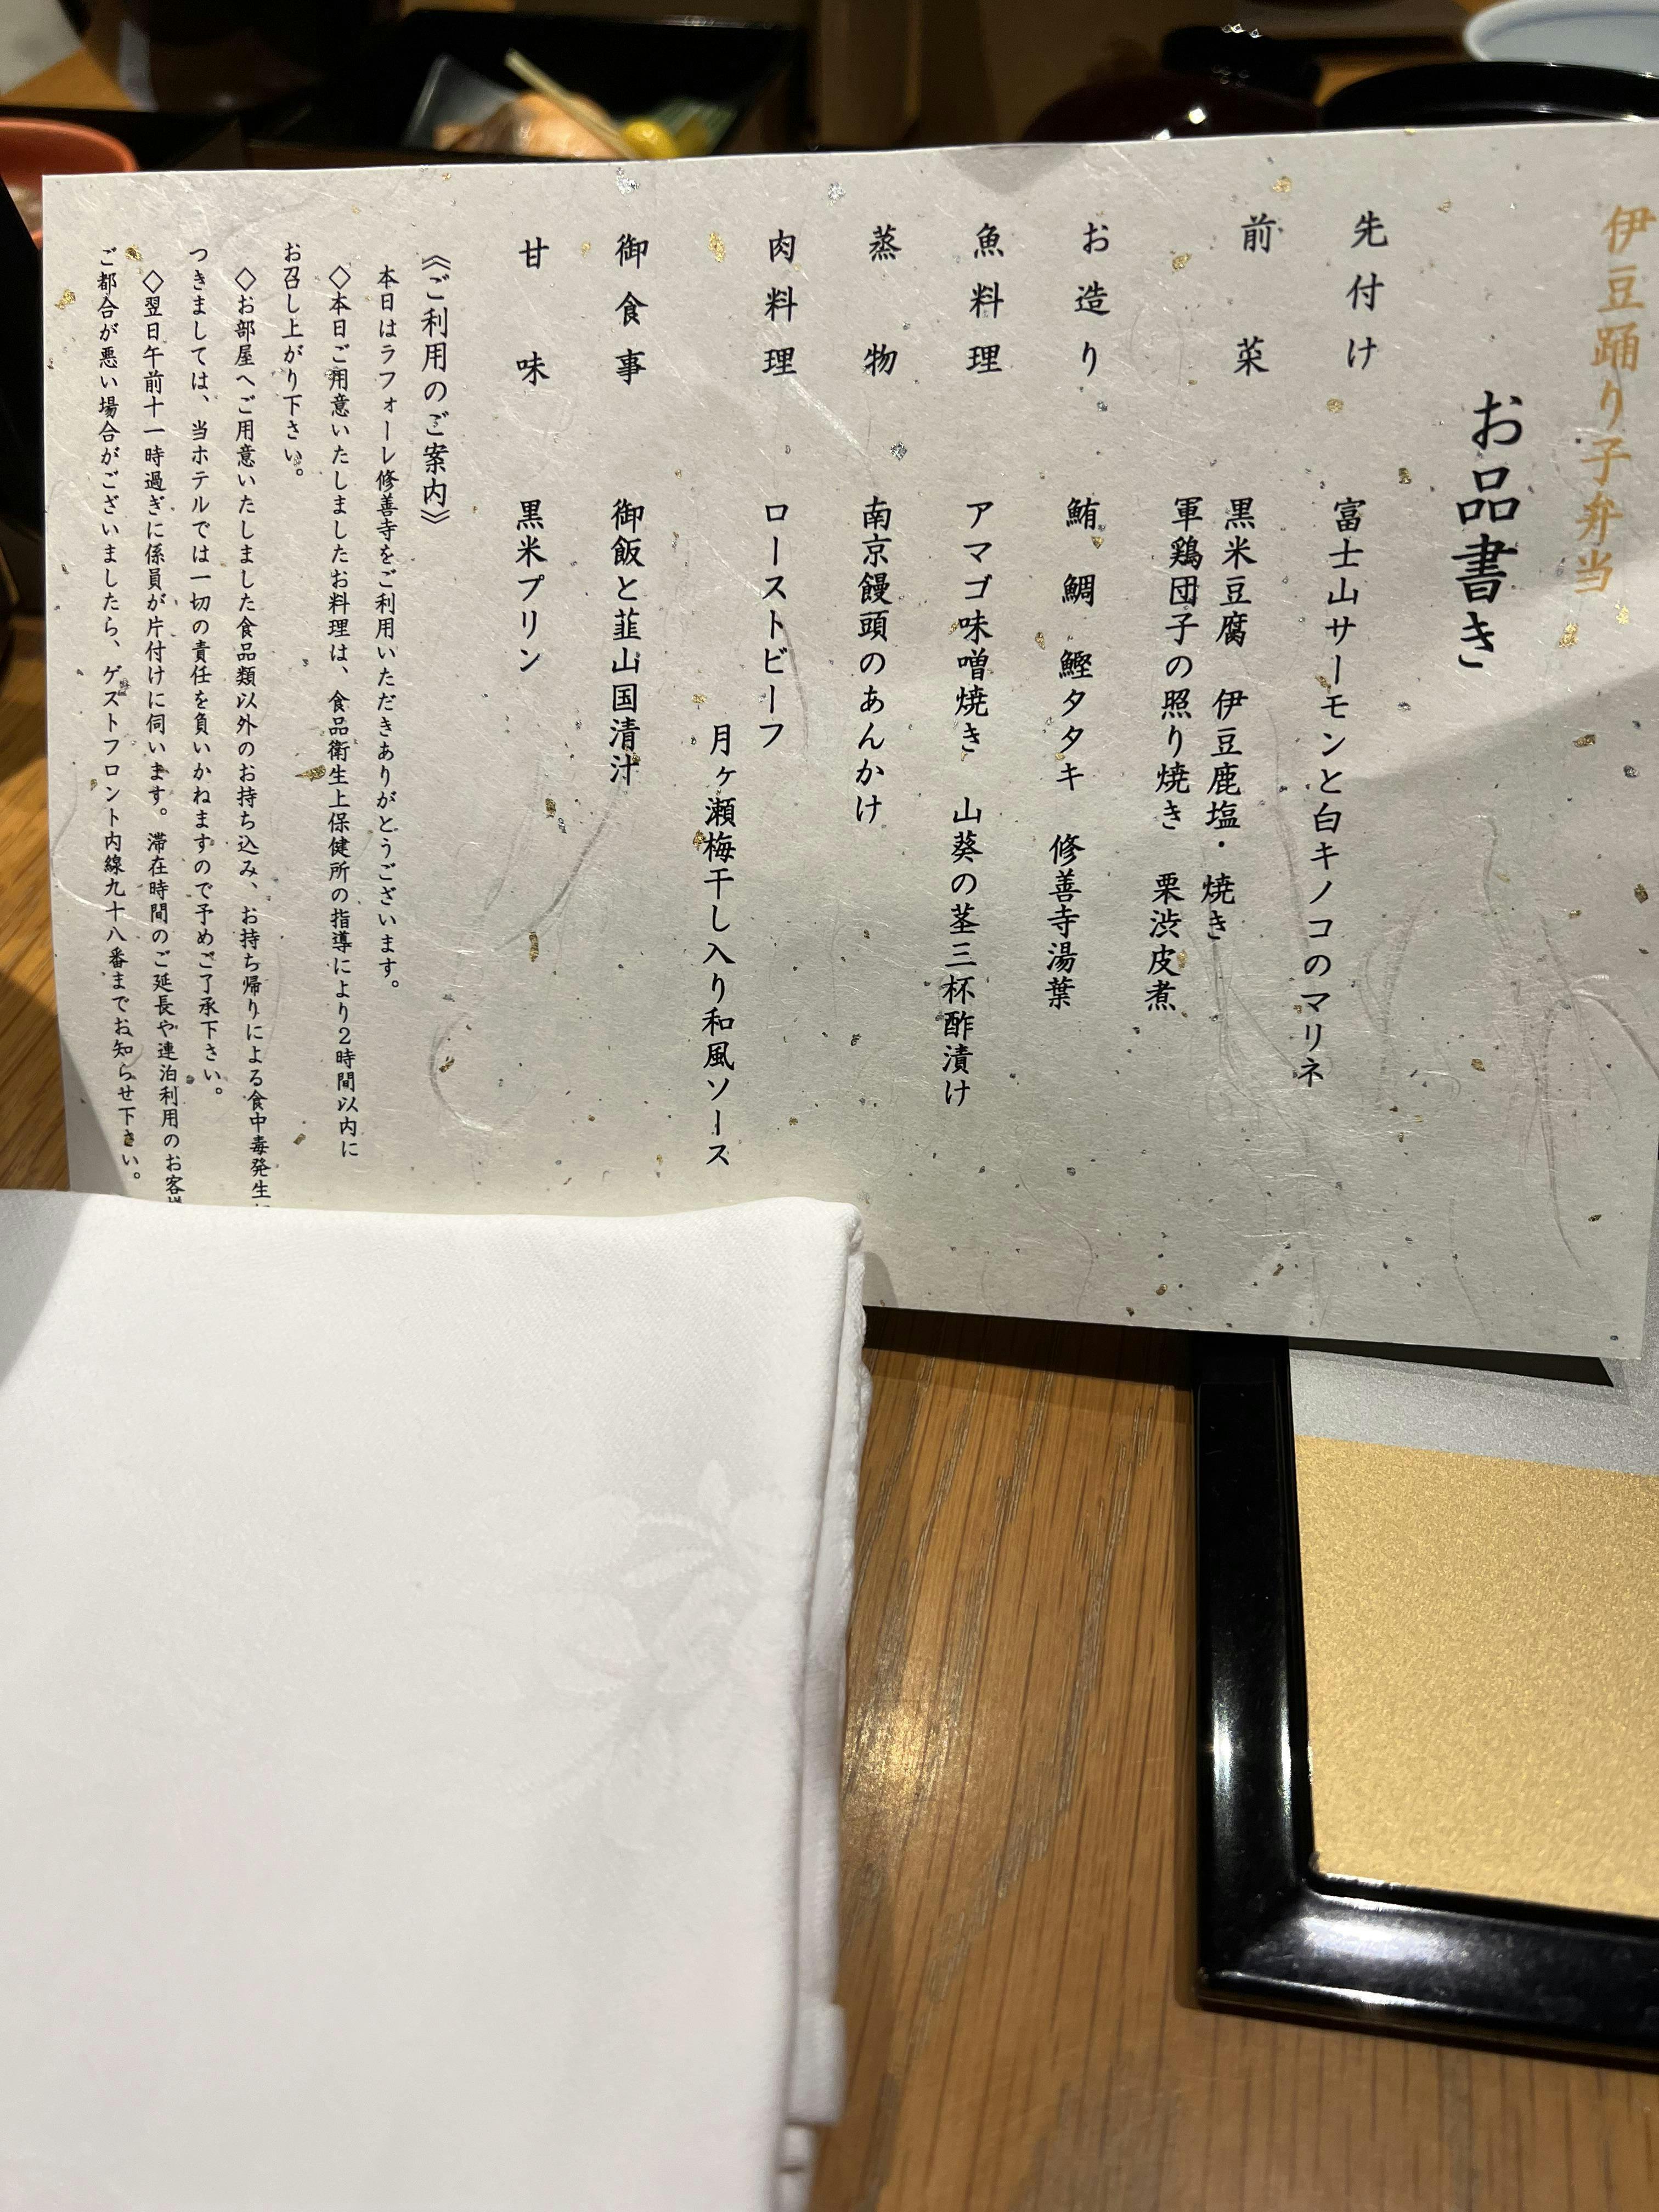 伊豆踊り子弁当
お品書き
先付け 富士山サーモンと白キノコのマリネ
前菜 黒米豆腐 伊豆鹿塩・焼き
軍鶏団子の照り焼き 栗渋皮煮
お造り 鮪 鯛 鰹タタキ 修善寺湯葉
魚料理 アマゴ味噌焼き 山葵の茎三杯酢漬け
蒸物 南京饅頭のあんかけ
肉料理 ローストビーフ
月ヶ瀬梅干し入り和風ソース
御食事 御飯と韮山国清汁
甘味 黒米プリン
《ご利用のご案内》
本日はラフォーレ修善寺をご利用いただきありがとうございます。
◇本日ご用意いたしましたお料理は、食品衛生上保健所の指導により2時間以内に
お召し上がり下さい。
◇お部屋へご用意いたしました食品類以外のお持ち込み、お持ち帰りによる食中毒発生
つきましては、当ホテルでは一切の責任を負いかねますので予めご了承下さい。
◇翌日午前十一時過ぎに係員が片付けに伺います。滞在時間のご延長や連泊利用のお客
ご都合が悪い場合がございましたら、ゲストフロント内線九十八番までお知らせ下さい。